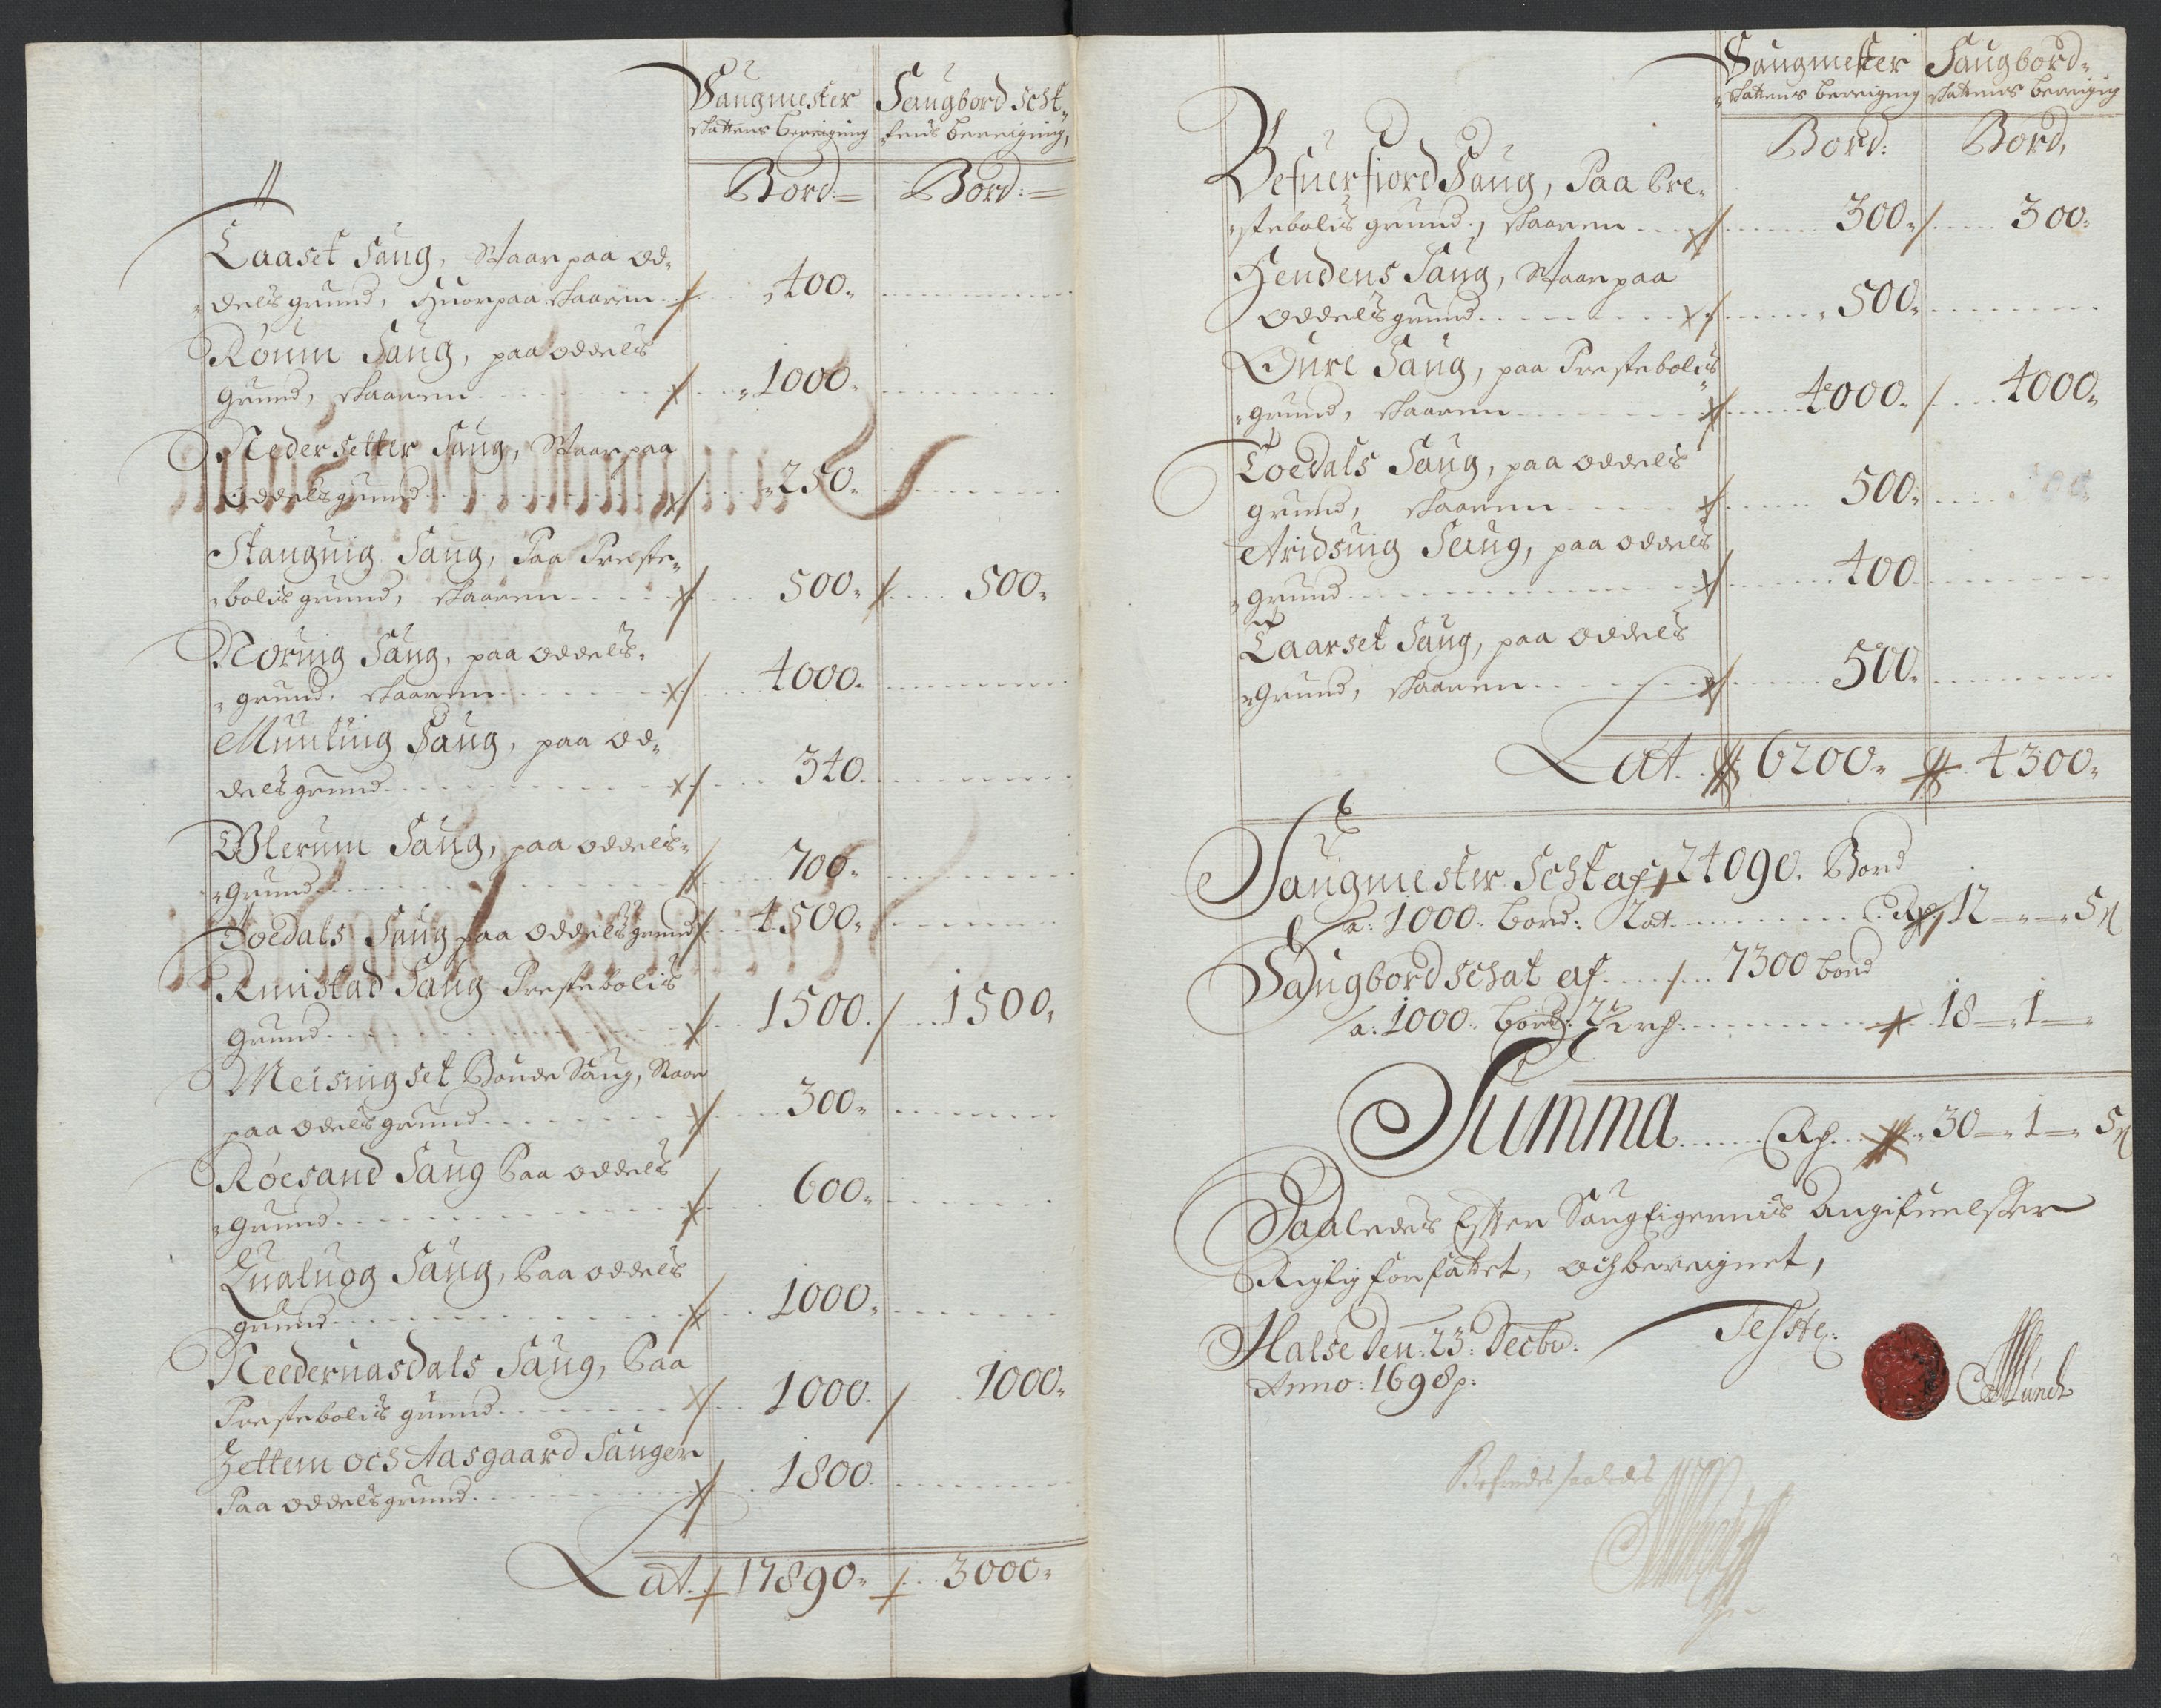 Saugmester Saugbord schat-
skattens bereigning tens bereigning,
Bord= Bord:=
Laaset Saug, Staar paa od-
dels grund, Huorpaa skaaren 400
Roum Saug, paa oddels
grund, skaaren 1000
Nedersetter Saug, Staar paa
oddels grund 250
Stanguig Saug, Paa Preste-
bolis grund, skaaren 500 500
Noruig Saug, paa oddels-
grund, skaaren 4000
Munling Saug, paa od-
dels grund 340
Ølerum Saug, paa oddels-
grund 700
Toedals Saug paa oddels grund 4500
Rimstad Saug Prestebolis
grund 1500 1500
Meisingset Bonde Saug, Staar
paa odels grund 300
Röesand Saug Paa oddels
grund 600
Qualuog Saug, Paa oddels
grund 1000
Needernasdals Saug, Paa
Prestebolis grund 1000 1000
Zettem och Aasgaard Sauger
Paa oddels grund 1800
Lat. 17890 3000
Saugmester Saugbord-
skattens bereigning skattens bereigning
Bord: Bord,
Befuerfiord Saug, Paa Pre-
stebolis grund, skaaren 300 300
Hendens Saug, Staar paa
oddels grund 500
Øure Saug, paa Prestebolis
grund, skaaren 4000 4000
Toedals Saug, paa oddels
grund, skaaren 500
Aridsuig Saug, paa oddels
grund 400
Laarset Saug, paa oddels
grund, skaaren 500
Lat. 6200 4300
Saugmester Schat af 24090. Bord
a: 1000 bord: 2 ort Rd 12 - - 5 s
Saugbord schat af 7300 bord
a: 1000 bord: 2½ rd: 18 - 1 -
Summa Rd. 30 - 1 - 5 s
Saaledes Efter Saugeigernis Angifuelsser
Rigtig forfattet, och bereignet,
Halse den: 23: Decbr: Teste:
Anno: 1698. Munch
Befindes saaledes